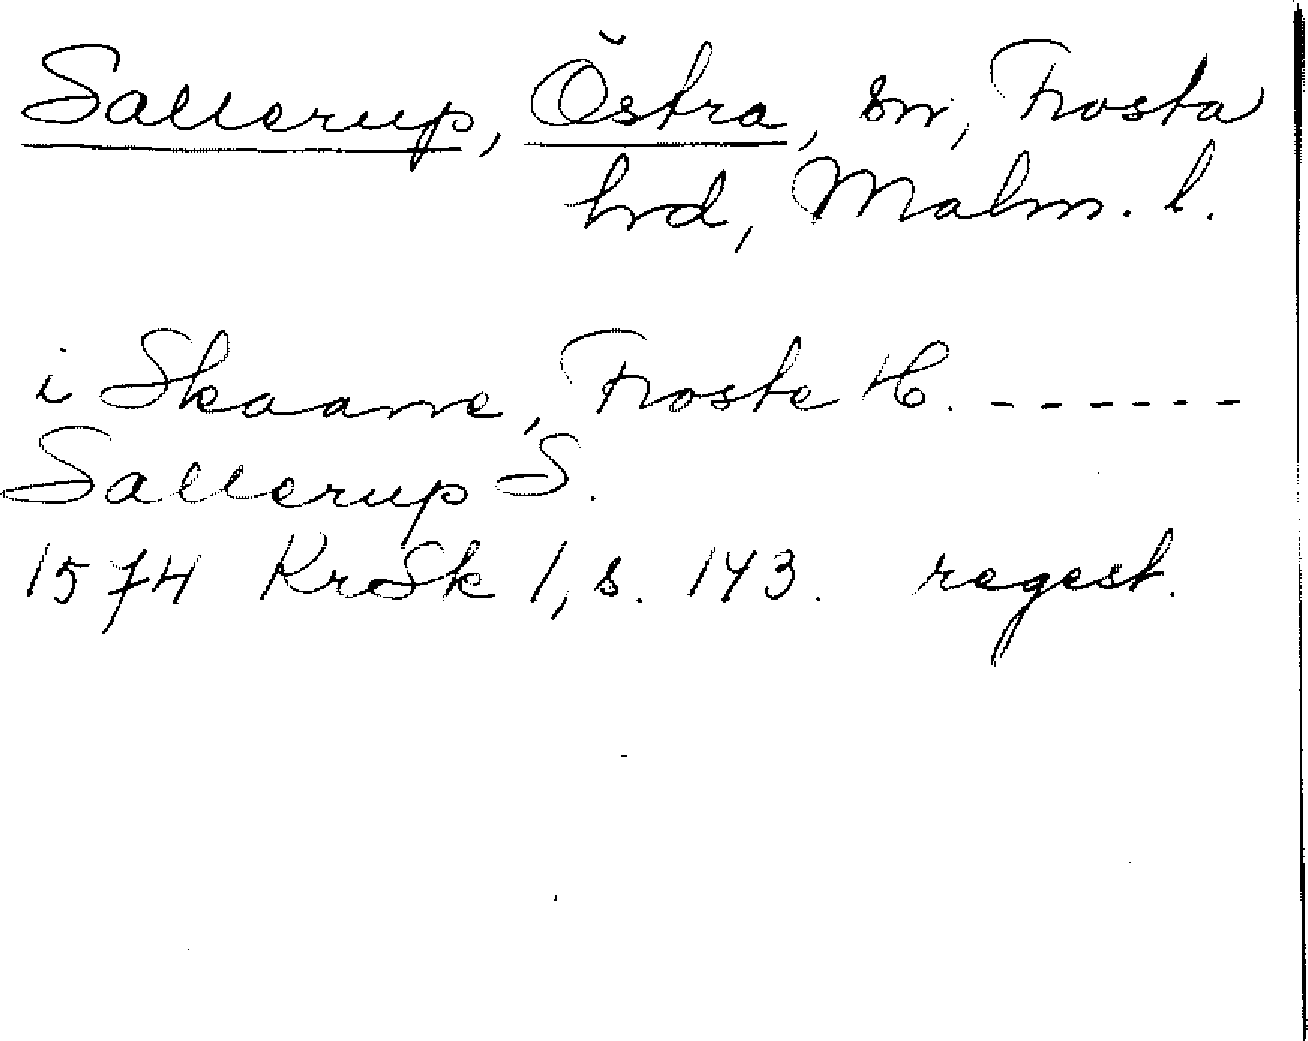 Sallerup, Östra, sn, Frosta
hrd, Malm. l.
i Skaane, Froste H. ------
Sallerup S.
1574 KrSk 1, s. 143. regest.